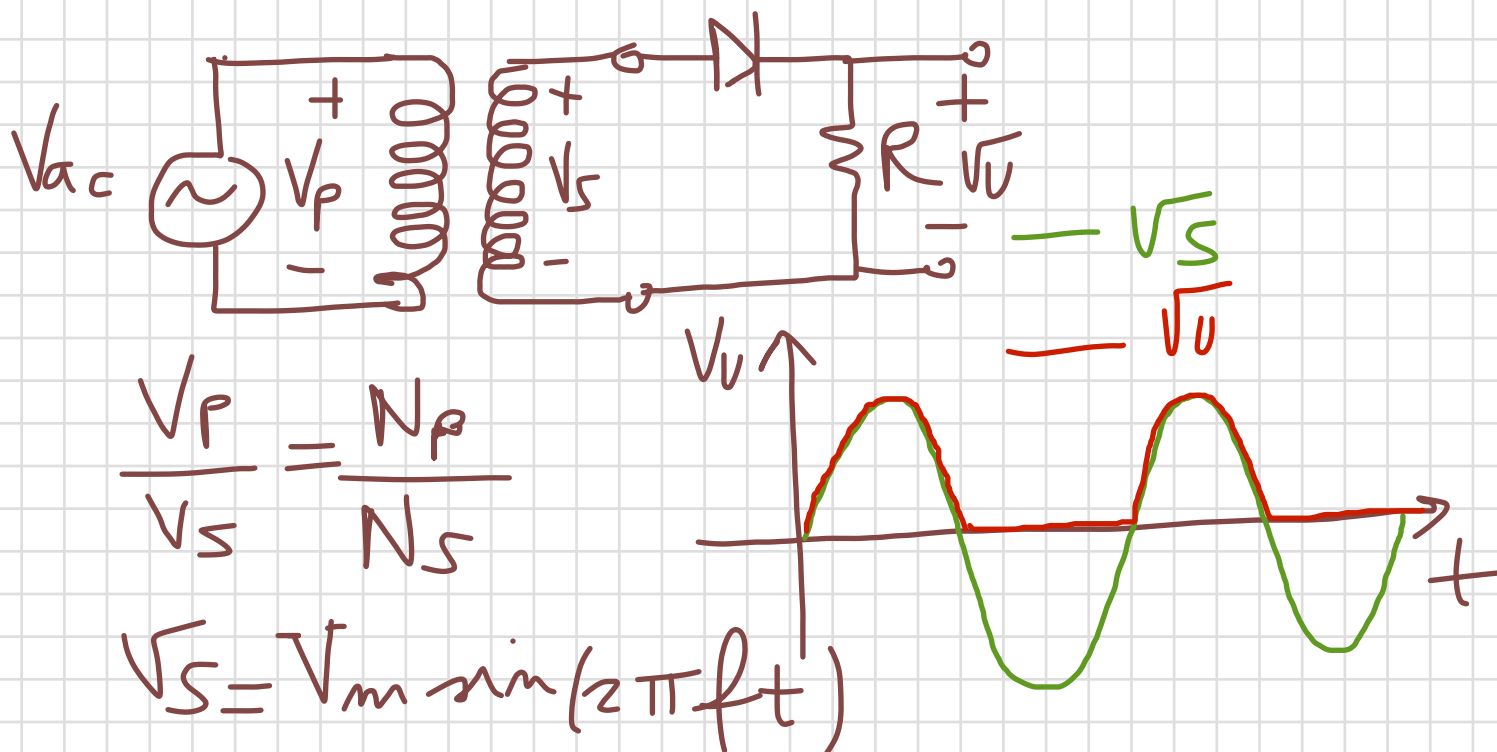 Vac
+
Vp
-
+
Vs
-
R
+
VU
-
Vs
VU
VU
t
Vp/Vs = Np/Ns
Vs = Vm sin(2πft)